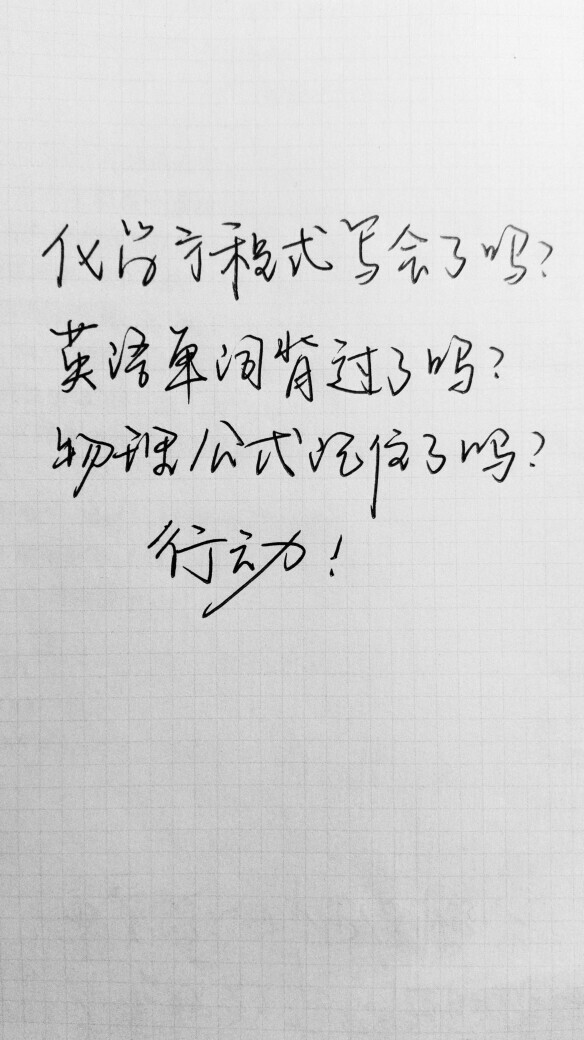 化学方程式写会了吗?
英语单词背过了吗?
物理公式记住了吗?
行动!